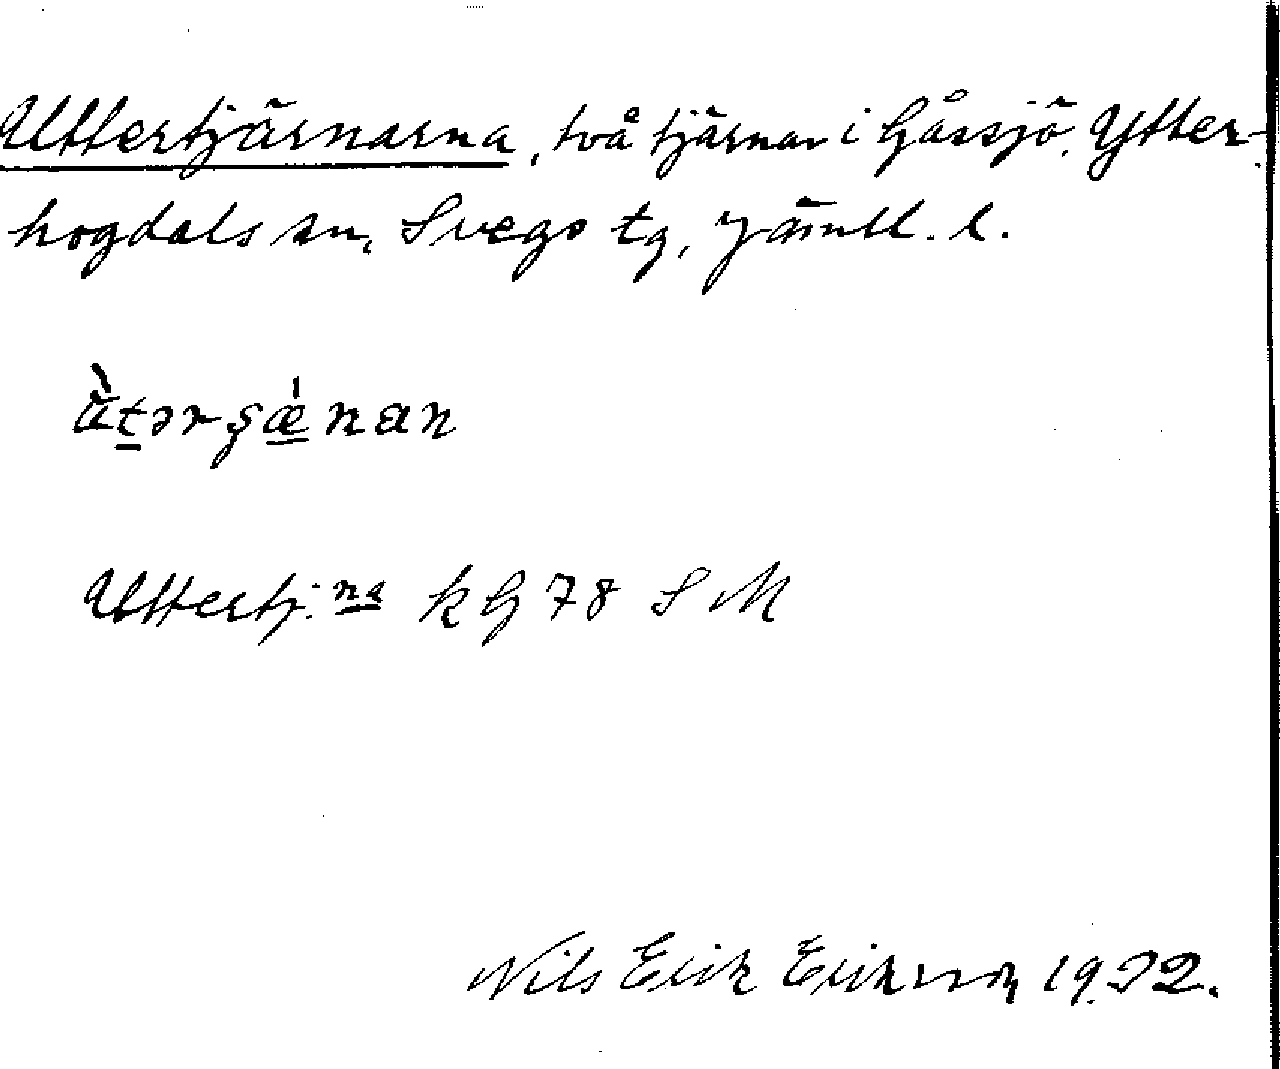 Uttertjärnarna, två tjärnar i Gåssjö, Ytter-
hogdals sn, Svegs tg, Jämtl. l.
ù̄tərʂǽnan
Uttertj:na k G 78 S M
Nils Erik Erikson 1932.